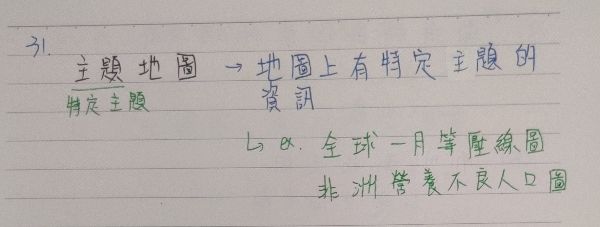 31.
主題地圖 → 地圖上有特定主題的
特定主題
資訊
↳ ex. 全球一月等壓線圖
非洲營養不良人口圖